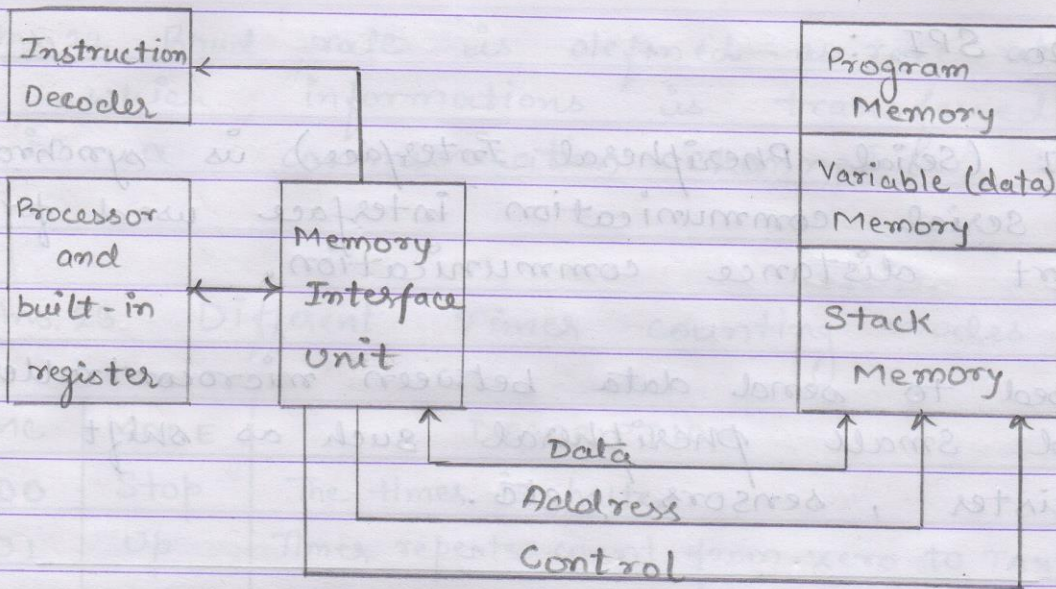 Instruction
Decoder
Processor
and
built-in
register
Memory
Interface
Unit
Program
Memory
Variable (data)
Memory
Stack
Memory
Data
Address
Control